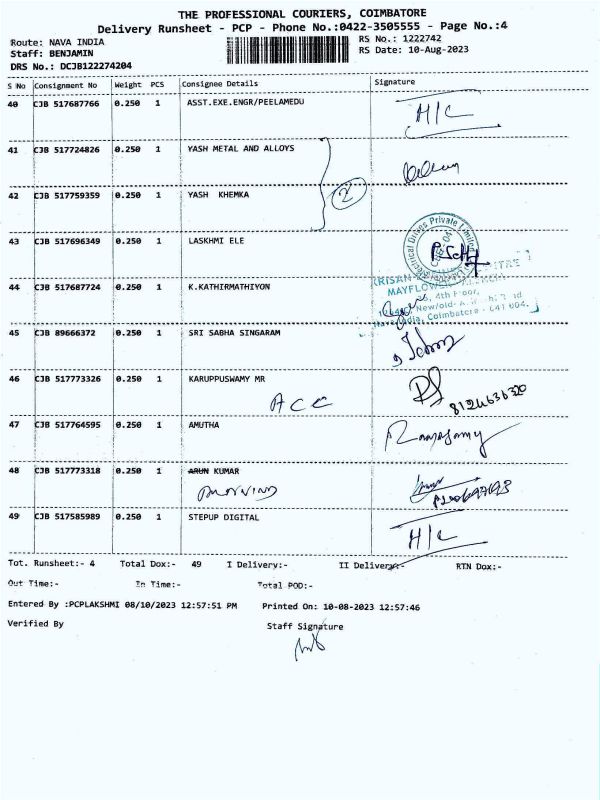 THE PROFESSIONAL COURIERS, COIMBATORE
Delivery Runsheet - PCP - Phone No.:0422-3505555 - Page No.:4
Route: NAVA INDIA RS No.: 1222742
Staff: BENJAMIN RS Date: 10-Aug-2023
DRS No.: DCJB122274204
S No Consignment No Weight PCS Consignee Details Signature
40 CJB 517687766 0.250 1 ASST.EXE.ENGR/PEELAMEDU H/C
41 CJB 517724826 0.250 1 YASH METAL AND ALLOYS
2
42 CJB 517759359 0.250 1 YASH KHEMKA
43 CJB 517696349 0.250 1 LASKHMI ELE
Electrical Drives Private Limited
44 CJB 517687724 0.250 1 K.KATHIRMATHIYON
MAYFLOWER
4th Floor,
New/old-
Nava India, Coimbatore - 641 004.
45 CJB 89666372 0.250 1 SRI SABHA SINGARAM
46 CJB 517773326 0.250 1 KARUPPUSWAMY MR
ACC 8124636320
47 CJB 517764595 0.250 1 AMUTHA Ramasamy
48 CJB 517773318 0.250 1 ARUN KUMAR
49 CJB 517585989 0.250 1 STEPUP DIGITAL H/C
Tot. Runsheet:- 4 Total Dox:- 49 I Delivery:- II Delivery:- RTN Dox:-
Out Time:- In Time:- Total POD:-
Entered By :PCPLAKSHMI 08/10/2023 12:57:51 PM Printed On: 10-08-2023 12:57:46
Verified By Staff Signature